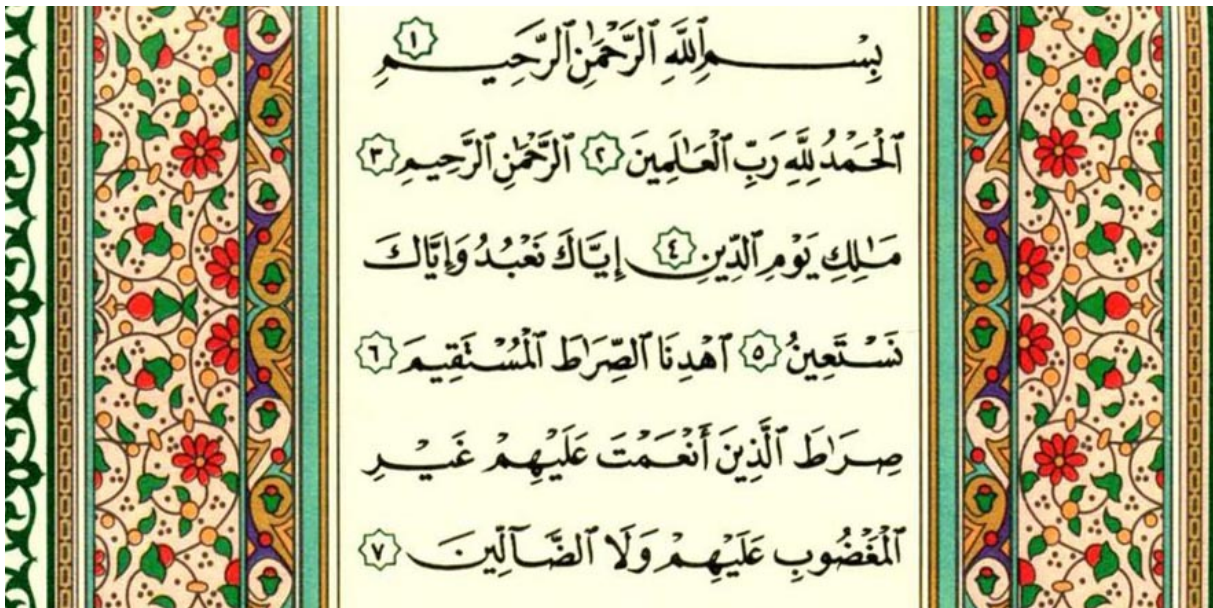 بِسْمِ ٱللَّهِ ٱلرَّحْمَٰنِ ٱلرَّحِيمِ ١
ٱلْحَمْدُ لِلَّهِ رَبِّ ٱلْعَٰلَمِينَ ٢ ٱلرَّحْمَٰنِ ٱلرَّحِيمِ ٣
مَٰلِكِ يَوْمِ ٱلدِّينِ ٤ إِيَّاكَ نَعْبُدُ وَإِيَّاكَ
نَسْتَعِينُ ٥ ٱهْدِنَا ٱلصِّرَٰطَ ٱلْمُسْتَقِيمَ ٦
صِرَٰطَ ٱلَّذِينَ أَنْعَمْتَ عَلَيْهِمْ غَيْرِ
ٱلْمَغْضُوبِ عَلَيْهِمْ وَلَا ٱلضَّآلِّينَ ٧